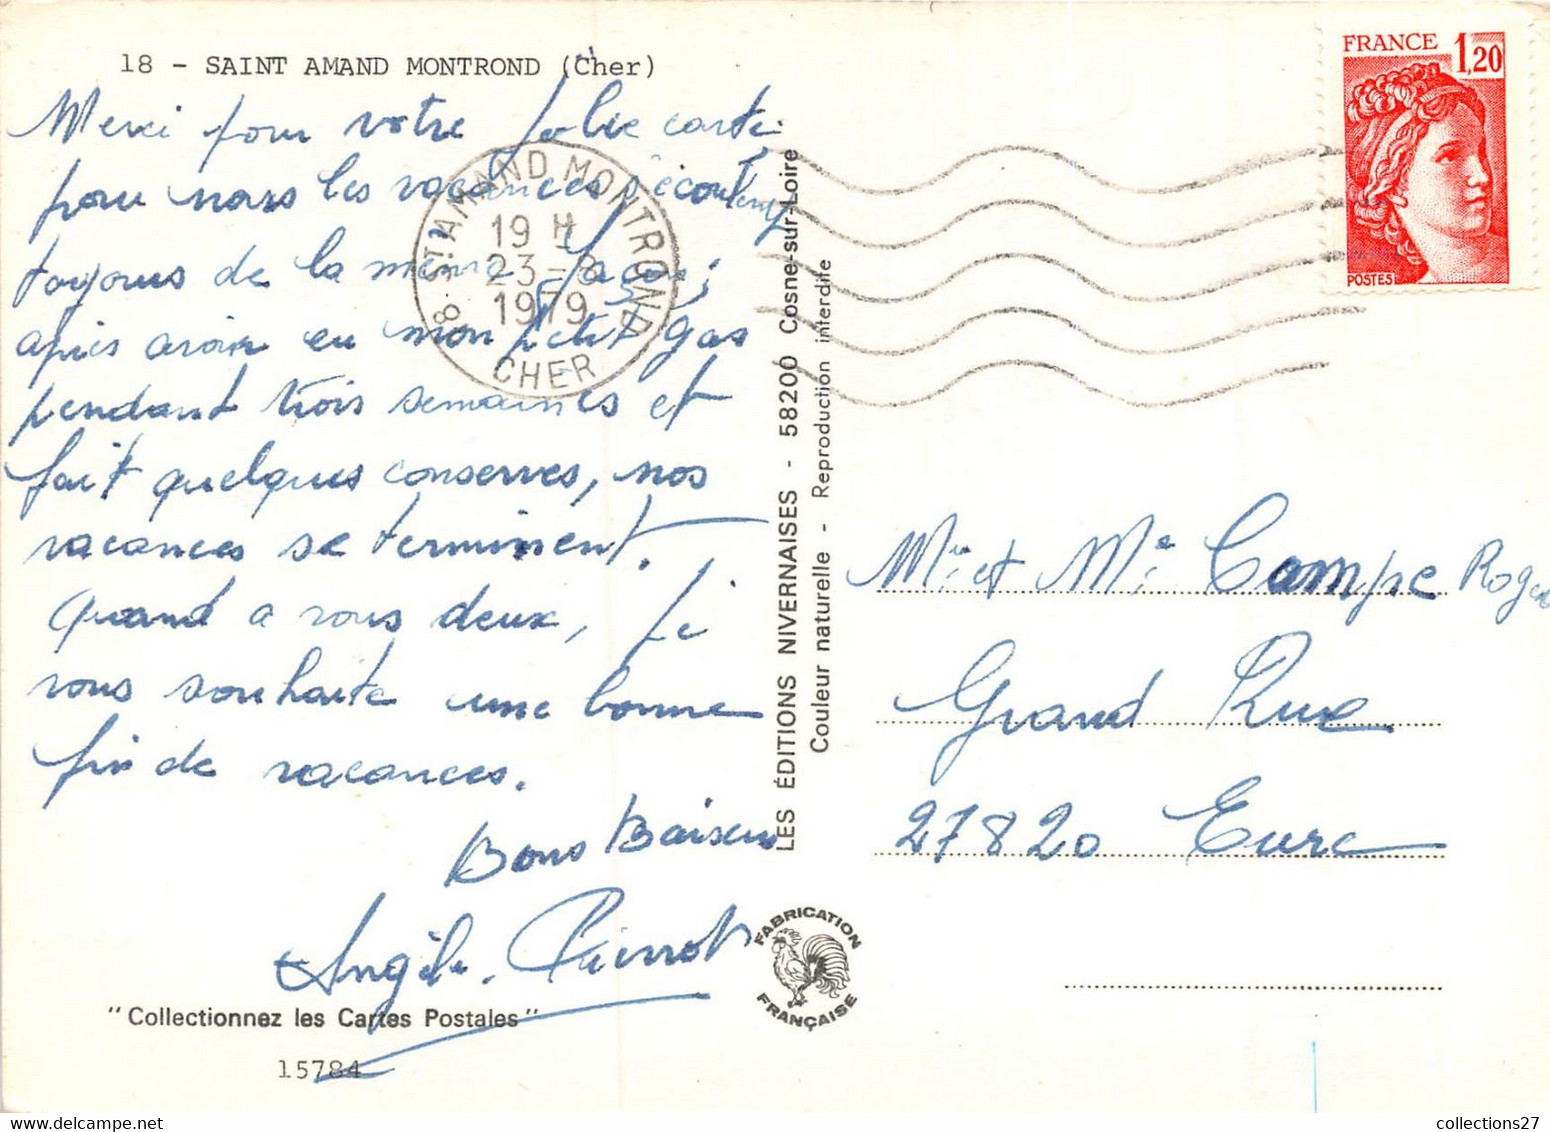 18 - SAINT AMAND MONTROND (Cher)
Merci pour votre jolie carte
pour nous les vacances s'écoulent
toujours de la même façon ;
après avoir eu mon petit gas
pendant trois semaines et
fait quelques conserves, nos
vacances se terminent.
Quand a vous deux, je
vous souhaite une bonne
fin de vacances.
Bons Baisers
Angèle. Pierrot
"Collectionnez les Cartes Postales"
15784
18 ST AMAND MONTROND
19 H
23-8
1979
CHER
LES ÉDITIONS NIVERNAISES - 58200 Cosne-sur-Loire
Couleur naturelle - Reproduction interdite
FABRICATION
FRANÇAISE
FRANCE 1,20
POSTES
Mr et Me Campe Roger
Grand Rue
27820 Eure
collections27